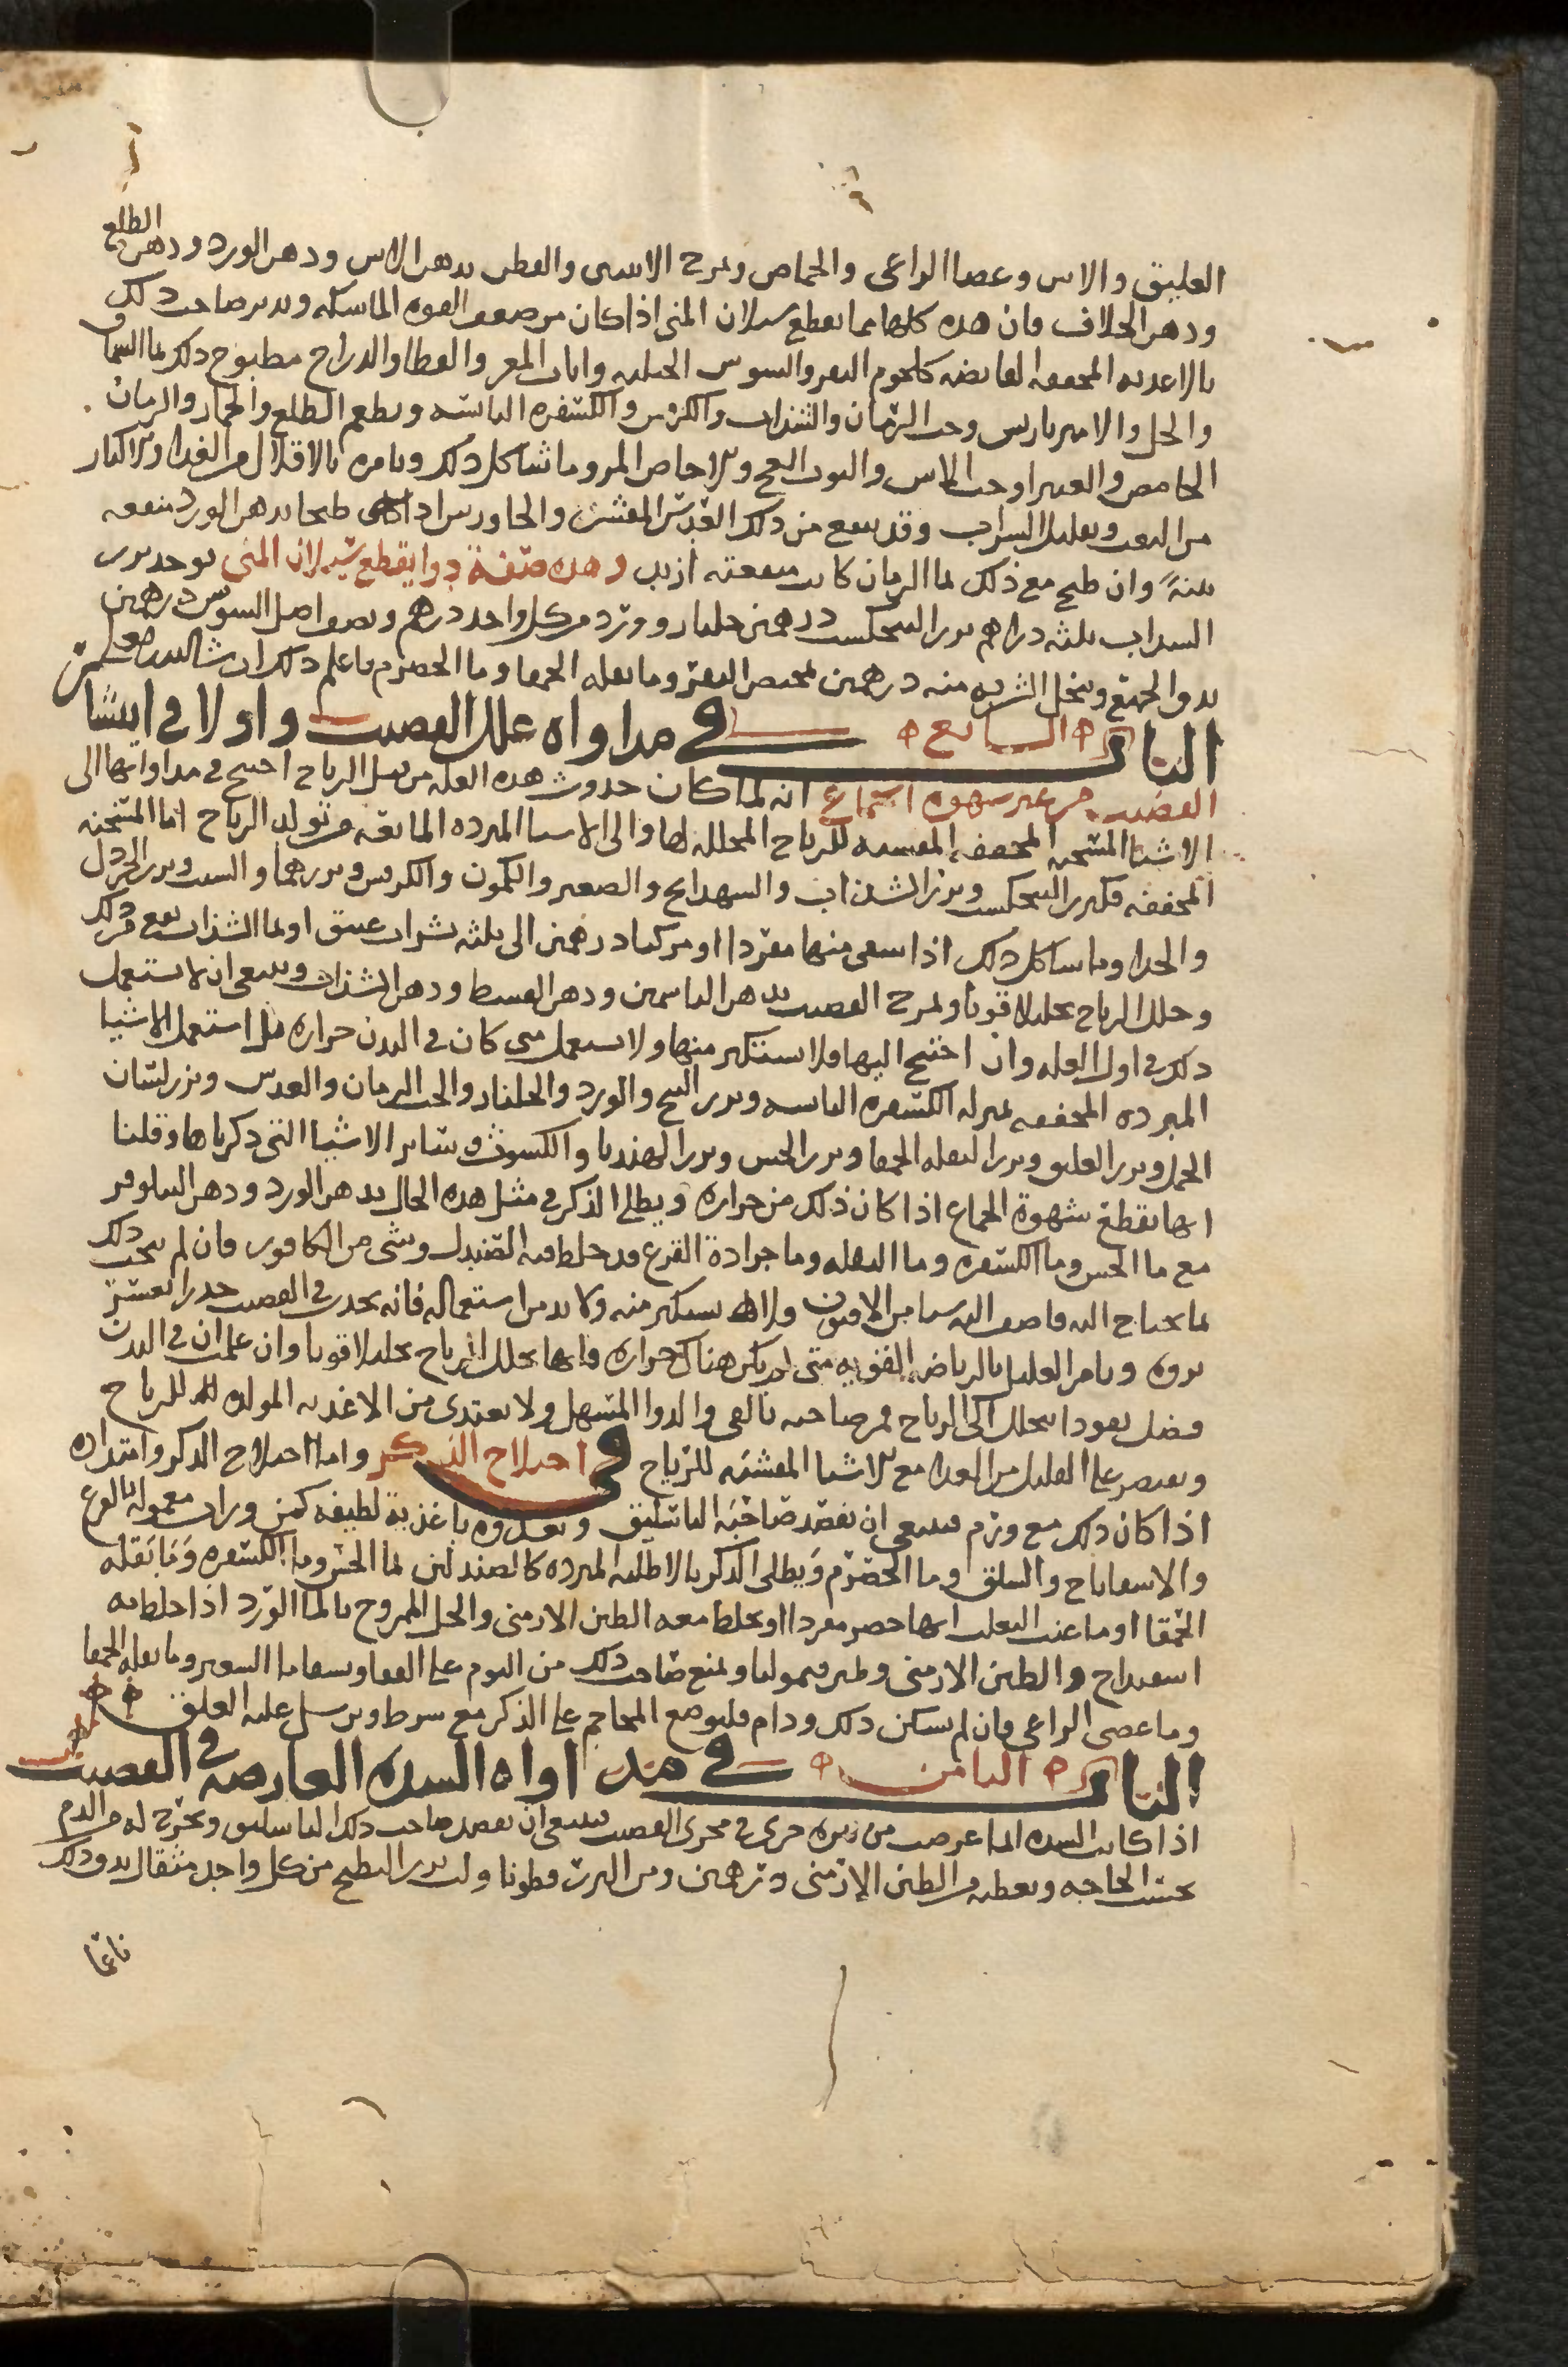 العليق والاس وعصا الراعى والحماض ويمرخ الانثيين والقطن بدهن الاس ودهن الورد ودهن الطلع
ودهن الخلاف فان هذه كلها مما يقطع سيلان المنى اذا كان من ضعف القوه الماسكه ويدبر صاحب ذلك
بالاغذيه المجففه القابضه كلحوم البقر والتيوس الجبليه واناث المعز والقطا والدراج مطبوخ ذلك بما السماق
والخل والامبرباريس وحب الرمان والشذاب والكرفس والكسفره اليابسه ويطعم الطلع والجمار والرمان
الحامض والغبيرا وحب الاس والتوت الفج والاجاص المر وما شاكل ذلك ويامره بالاقلال من الغذا والاكثار
من التعب وتقليل الشراب وقد ينفع من ذلك العدس المقشر والجاورس اذا طبخا بدهن الورد منفعه
بينةً وان طبخ مع ذلك بما الرمان كانت منفعته ازيد وهذه صفة دوا يقطع سيلان المنى يوخذ بزر
السداب ثلثه دراهم بزر البنجنكست درهمين جلنار وورد من كل واحد درهم ونصف اصل السوس درهمين
يدق الجميع وينخل الشربه منه درهمين بمخيض البقر وما بقله الحمقا وما الحصرم فاعلم ذلك ان شا الله
الباب السابع في مداواه علل القضيب واولا في انتشار
القضيب من غير شهوه الجماع انه لما كان حدوث هذه العله من قبل الرياح احتيج في مداواتها الى
الاشيا المسخنه المجففه المفشيه للرياح المحلله لها والى الاشيا المبرده المانعه من تولد الرياح اما المسخنه
المجففه فكبزر البنجنكست وبزر الشذاب والشهدانج والصعتر والكمون والكرفس وبزرهما والشبت وبزر الخردل
وما شاكل ذلك اذا سقى منها مفردا او مركبا درهمين الى ثلثه بشراب عتيق او بما الشذاب نفع من ذلك
وحلل الرياح تحليلا قويا ويمرخ القضيب بدهن الياسمين ودهن القسط ودهن الشذاب وينبغى ان لا تستعمل
ذلك في اول العله وان احتيج اليها فلا تستكثر منها ولا تستعمل متى كان في البدن حراره بل استعمل الاشيا
المبرده المجففه بمنزله الكسفره اليابسه وبزر البنج والورد والجلنار والحب الرمان والعدس وبزر لسان
الحمل وبزر العليق وبزر البقله الحمقا وبزر الخس وبزر الهندبا والكسوث وساير الاشيا التى ذكرناها وقلنا
انها تقطع شهوة الجماع اذا كان ذلك من حراره ويطلى الذكر في مثل هذه الحال بدهن الورد ودهن النيلوفر
مع ما الخس وما الكسفره وما البقله وما جرادة القرع قد خلط فيه الصندل وشى من الكافور فان لم ينجب ذلك
بما يحتاج اليه فاضف اليه شيا من الافيون ولا تستكثر منه ولا تدمن استعماله فانه يحدث في القضيب خدرا يعسر
بروه وتامر العليل بالرياضه القويه متى لم يكن هناك حراره فانها تحلل الرياح تحليلا قويا وان علمت ان في البدن
فضل يعود ا يتحلل الى الرياح فمر صاحبه بالقى والدوا المسهل ولا يغتدى من الاغذيه المولده للرياح
ويقتصر على القليل من الغذا مع الاشيا المفشيه للرياح في اختلاج الذكر واما اختلاج الذكر وامتداده
اذا كان ذلك مع ورم فينبغى ان تفصد صاحبه الباسليق وتغذوه باغذية لطيفه كمزورات معموله بالقرع
والاسفاناخ والسلق وما الحصرم ويطلى الذكر بالاطليه المبرده كالصندلين بما الخس وما الكسفره وما بقله
الحمقا او ما عنب الثعلب ايها حضر مفردا او يخلط معه الطين الارمنى والخل الممزوج بالما الورد اذا خلط به
اسفيداج والطين الارمنى ويمنع صاحب ذلك من النوم على القفا ويسقا ما الشعير وما بقله الحمقا
وما عصى الراعى فان لم يسكن ذلك ودام فليوضع المحاجم على الذكر مع شرط ويرسل عليه العلق
الباب الثامن في مداواه السده العارضه في القضيب
اذا كانت السده انما عرضت من بثره خرجت في مجرى القضيب فينبغى ان تفصد صاحب ذلك الباسليق وتخرج له من الدم
بحسب الحاجه ويعطيه من الطين الارمنى درهمين ومن البزر قطونا ولب بزر البطيخ من كل واحد مثقال يدق ذلك
ناعما